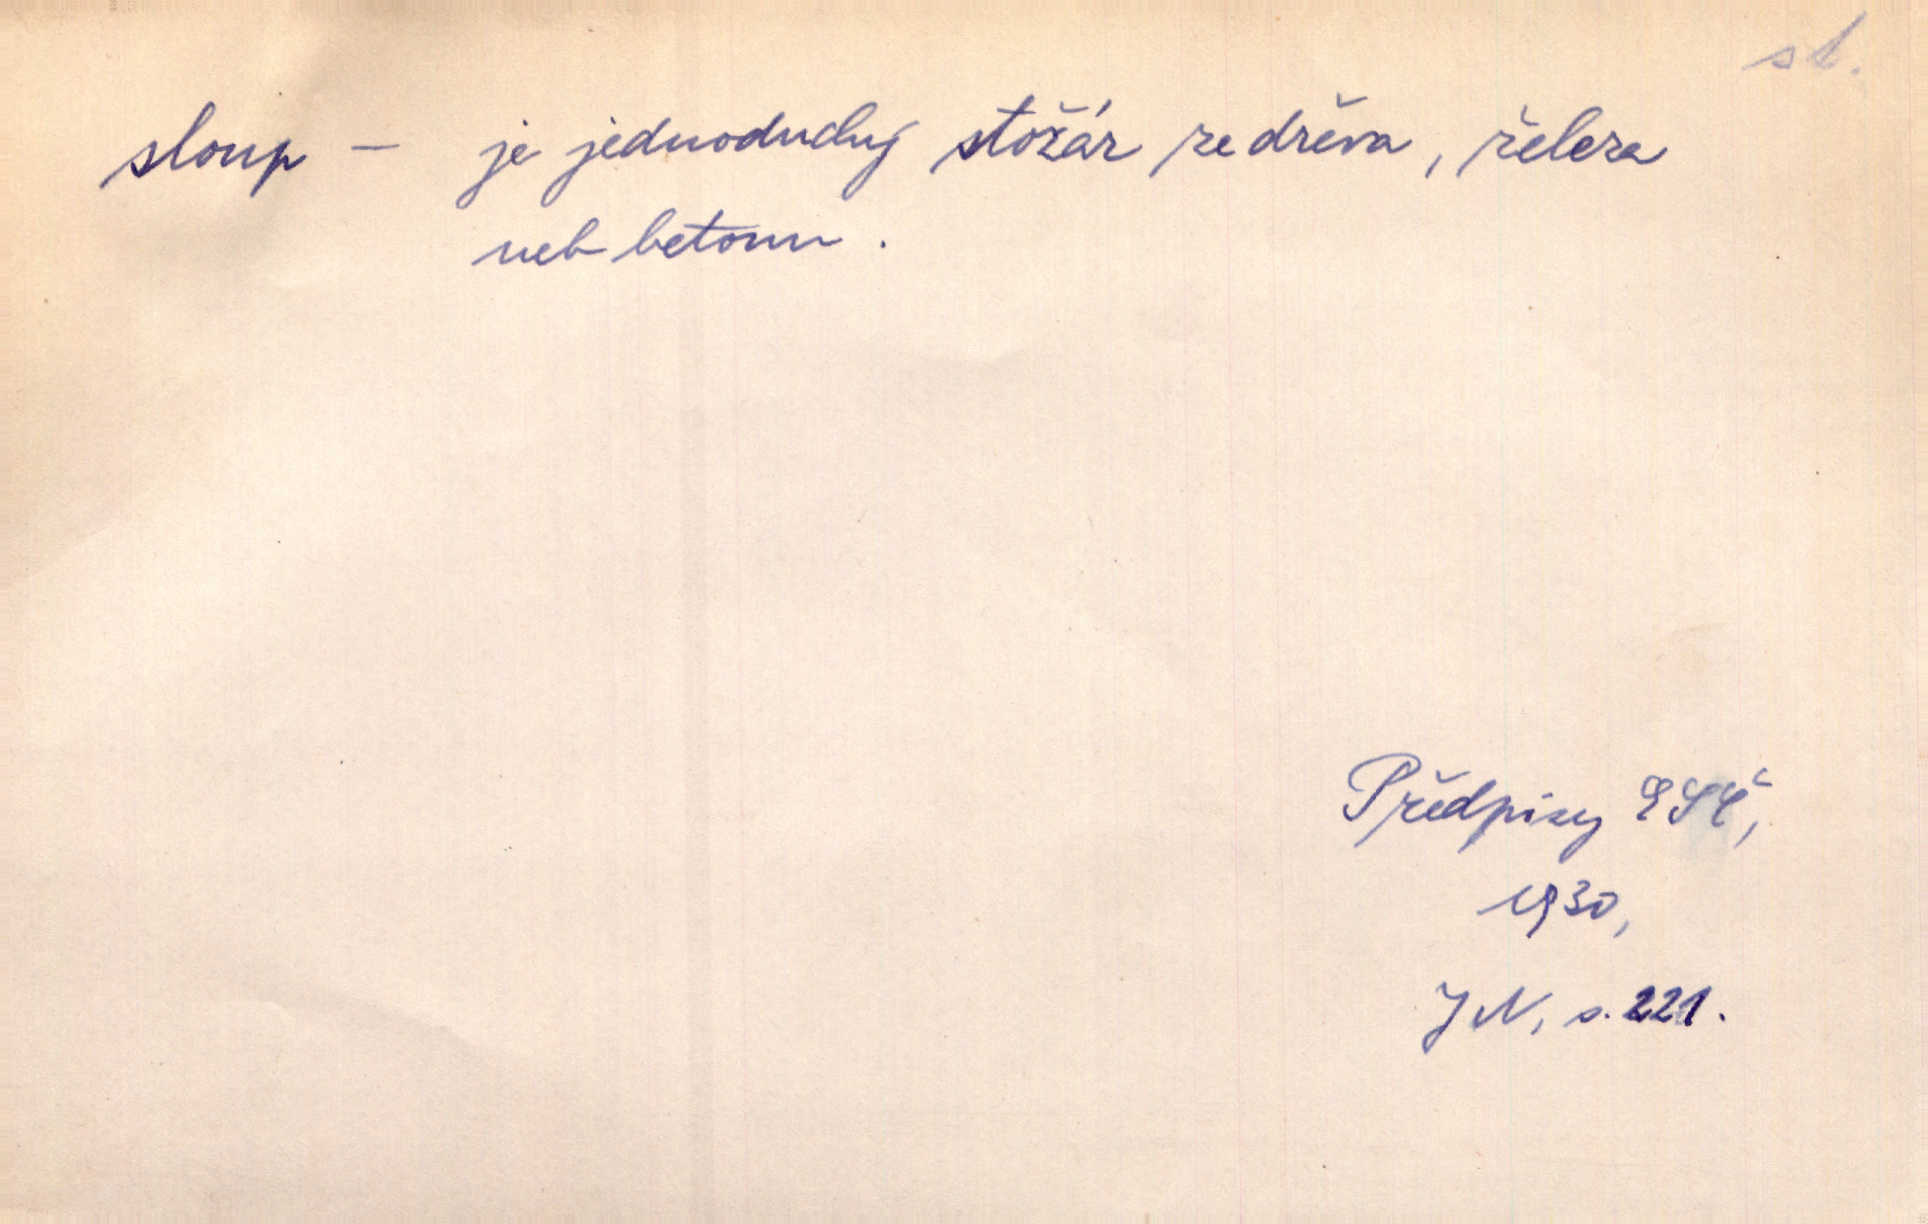 st.
sloup – je jednoduchý stožár ze dřeva, železa
neb betonu.
Předpisy ESČ,
1930,
JN, s. 221.